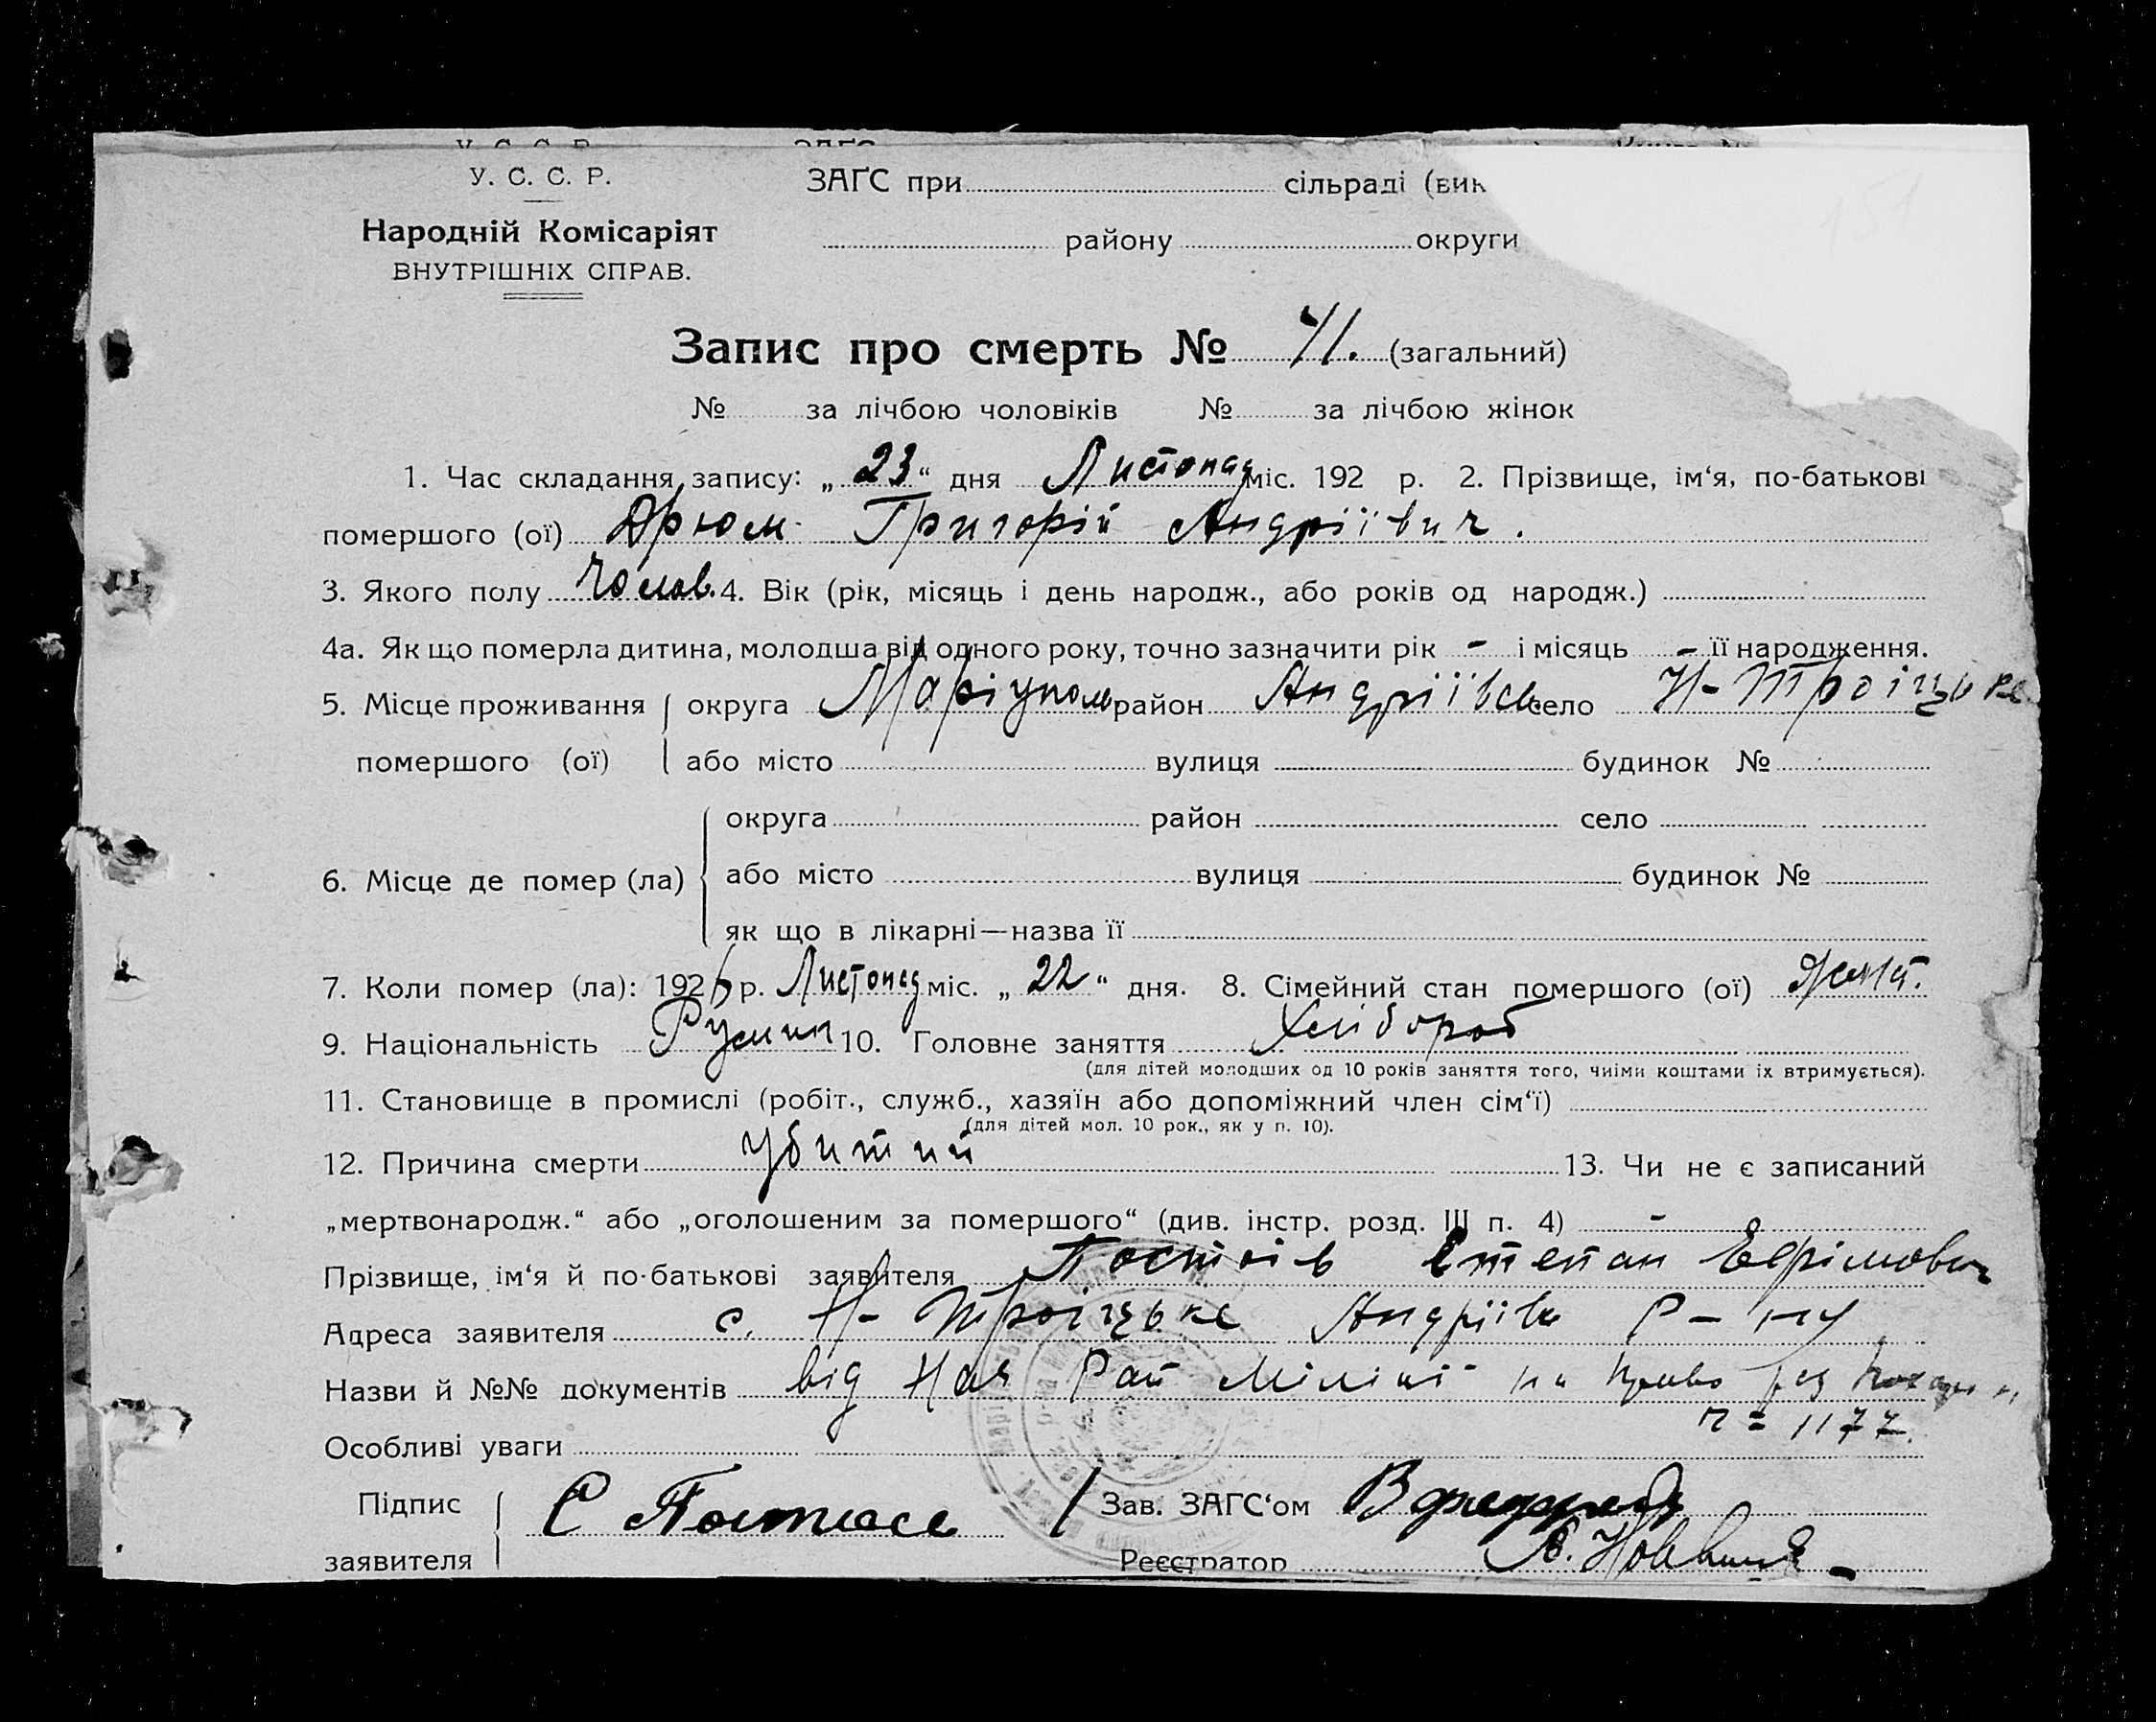 У. С. С. Р.
ЗАҐС при сільраді (вик
Народній Комісаріят
району округи
ВНУТРІШНІХ СПРАВ.
Запис про смерть № 41. (загальний)
№ за лічбою чоловіків № за лічбою жінок
1. Час складання запису: „23“ дня Листопад міс. 192 р. 2. Прізвище, ім‘я, по-батькові
помершого (ої) Дрюм Григорій Андріївич.
3. Якого полу Чолов. 4. Вік (рік, місяць і день народж., або років од народж.)
4а. Як що померла дитина, молодша від одного року, точно зазначити рік - і місяць - її народження.
5. Місце проживання округа Маріуполь район Андріївсь село Н-Троіцьке
помершого (ої) або місто вулиця будинок №
округа район село
6. Місце де помер (ла) або місто вулиця будинок №
як що в лікарні—назва її
7. Коли помер (ла): 1926 р. Листопад міс. „22“ дня. 8. Сімейний стан помершого (ої) Жонат.
9. Національність 10. Головне заняття Хлібороб
(для дітей молодших од 10 років заняття того, чиїми коштами їх втримується).
11. Становище в промислі (робіт., служб., хазяїн або допоміжний член сім‘ї)
(для дітей мол. 10 рок., як у п. 10).
12. Причина смерти Убитий 13. Чи не є записаний
„мертвонародж.“ або „оголошеним за помершого“ (див. інстр. розд. III п. 4) -
Прізвище, ім‘я й по-батькові заявителя Степан Ефімович
Адреса заявителя с. Н-Троіцьке Андріївсь Р-ну
Назви й №№ документів від Нач Рай Міліції на право
1177.
Особливі уваги
Підпис С Зав. ЗАГС‘ом
заявителя Реєстратор